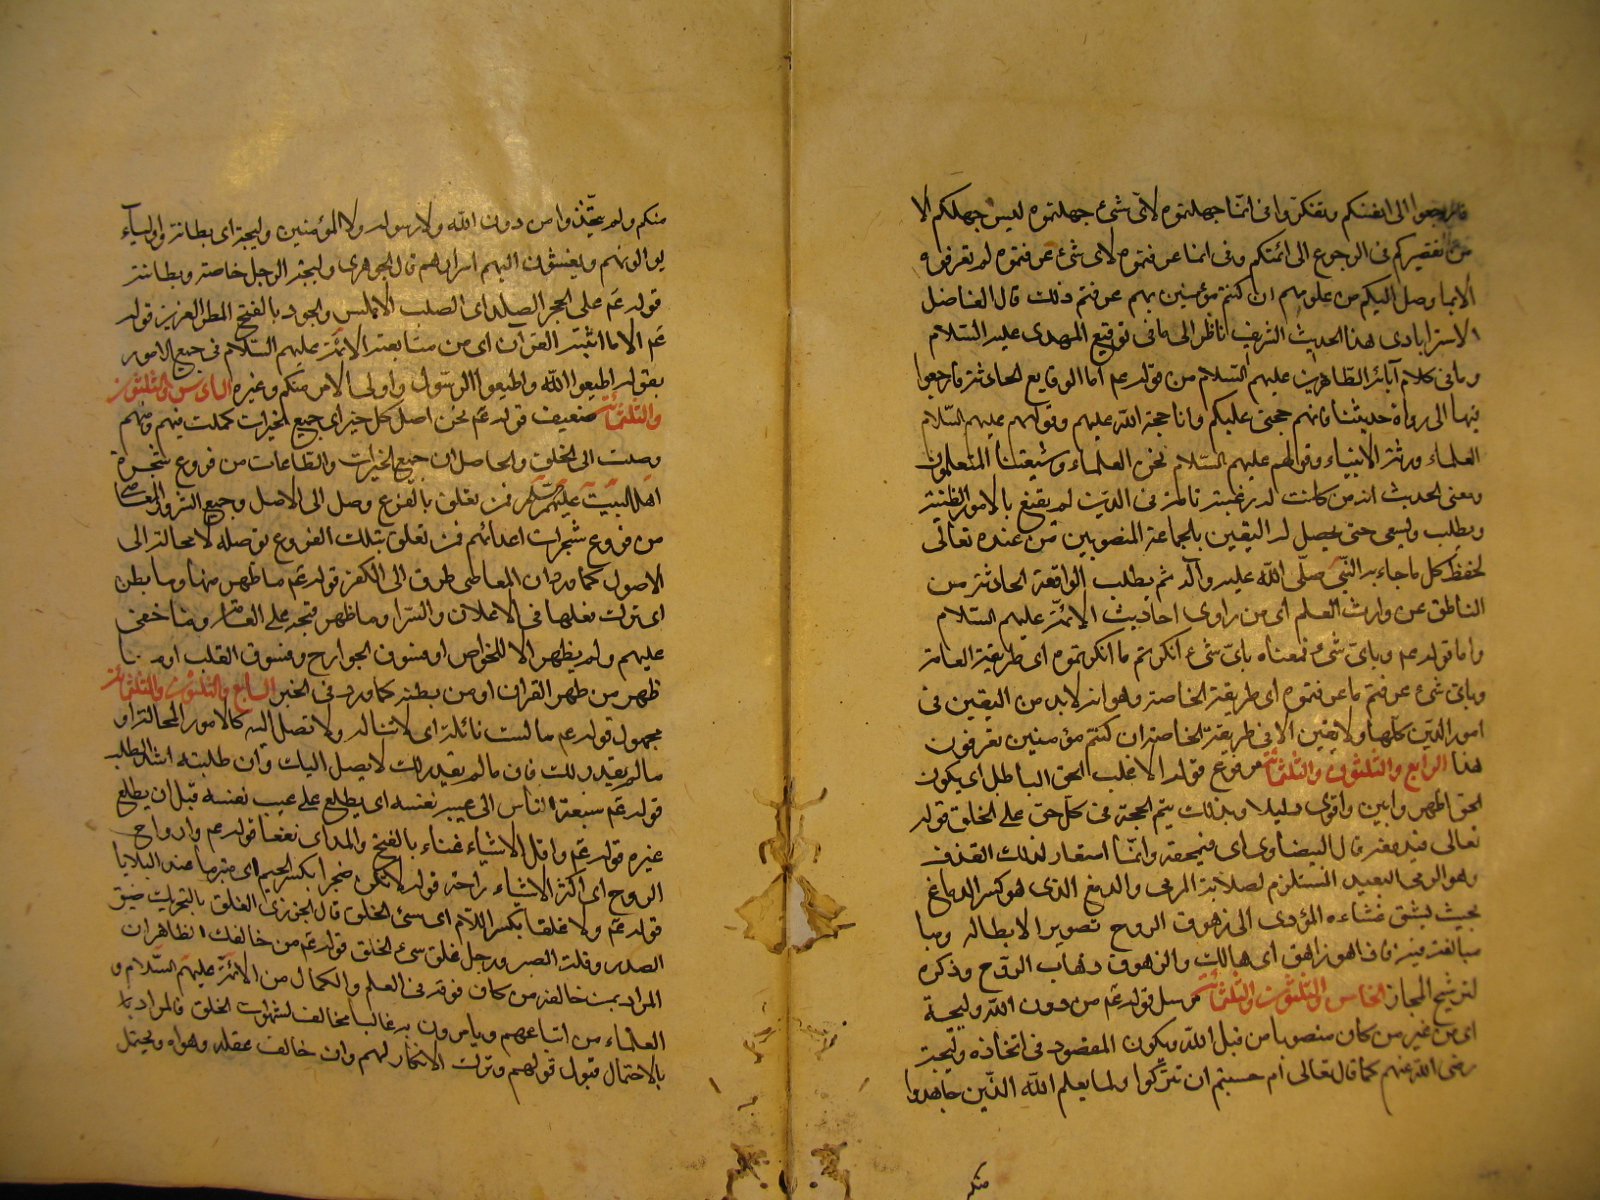 فارجعوا الى انفسكم وتفكروا فى انما جهلتموه لاى شئ جهلتموه ليس جهلكم الا
من تقصيركم فى الرجوع الى ائمتكم وفى انما عرفتموه لاى شئ عرفتموه لم تعرفوه
الا بما وصل اليكم من علومهم ان كنتم مؤمنين بهم عرفتم ذلك قال الفاضل
الاسترابادى هذا الحديث الشريف ناظر الى ما فى توقيع المهدى عليه السلام
وما فى كلام آبائه الطاهرين عليهم السلام من قوله عم اما الوقايع الحادثة فارجعوا
فيها الى رواة حديثنا فانهم حجتى عليكم وانا حجة الله عليهم وقولهم عليهم السلام
العلماء ورثة الأنبياء وقولهم عليهم السلام نحن العلماء وشيعتنا المتعلمون
ومعنى الحديث انه من كانت له رغبة تامة فى الدين لم يقنع بالامور الظنية
ويطلب ويسعى حتى يحصل له اليقين بالجماعة المنصوبين من عنده تعالى
لحفظ كل ما جاء به النبى صلى الله عليه وآله ثم يطلب الواقعة الحادثة من
الناطق عن وارث العلم اى من راوى احاديث الأئمة عليهم السلام
واما قوله عم وباى شئ فمعناه باى شئ انكرتم ما انكرتموه اى طريقة العامة
وباى شئ عرفتم ما عرفتموه اى طريقة الخاصة وهو انه لابد من اليقين فى
امور الدين كلها ولا يقين الا فى طريقة الخاصة ان كنتم مؤمنين تعرفون
هذا الرابع والثلثون والثلثمائة مرفوع قوله الا غلب الحق الباطل اى يكون
الحق اظهر وابين واقوى دليلا وبذلك يتم الحجة فى كل حق على الخلق قوله
تعالى فيدمغه قال البيضاوى اى فيمحقه وانما استعار لذلك القذف
وهو الرمى البعيد المستلزم لصلابة المرمى والدمغ الذى هو كسر الدماغ
بحيث يشق غشاءه المؤدى الى زهوق الروح تصويرا لابطاله وبها
مبالغة فيه فاذا هو زاهق اى هالك والزهوق ذهاب الروح وذكره
لترشيح المجاز الخامس والثلثون والثلثمائة مرسل قوله عم من دون الله وليجة
اى من غير من كان منصوبا من قبل الله ويكون المقصود فى اتخاذه وليجة
رضى الله عنهم كما قال تعالى ام حسبتم ان تتركوا ولما يعلم الله الذين جاهدوا
منكم
منكم ولم يتخذوا من دون الله ولا رسوله ولا المؤمنين وليجة اى بطانة واولياء
يوالونهم ويفشون اليهم اسرارهم قال الجوهرى وليجة الرجل خاصته وبطانته
قوله عم على الحجر الصلد اى الصلب الاملس والجود بالفتح المطر الغزير قوله
عم الا ما اثبته القرآن اى من متابعة الائمة عليهم السلام فى جميع الامور
بقوله اطيعوا الله واطيعوا الرسول واولى الامر منكم وغيره السادس والثلثون
والثلثمائة ضعيف قوله عم نحن اصل كل خير اى جميع الخيرات كملت فيهم ومنهم
وصلت الى الخلق والحاصل ان جميع الخيرات والطاعات من فروع شجرة
اهل البيت عليهم فمن تعلق بالفرع وصل الى الاصل وجميع الشرور والمعاصى
من فروع شجرات اعدائهم فمن تعلق بتلك الفروع توصله لا محالة الى
الاصول كما ورد ان المعاصى طرق الى الكفر قوله عم ما ظهر منها وما بطن
اى ترك فعلها فى الاعلان والسر او ما ظهر قبحه على العامة وما خفى
عليهم ولم يظهر الا للخواص او فسوق الجوارح وفسوق القلب او ما
ظهر من ظهر القرآن او من بطنه كما ورد فى الخبر السابع والثلثون والثلثمائة
مجهول قوله عم ما ليست نائلة اى لا تناله ولا تصل اليه كالامور المحالة او
ما لم يقدر لك فان ما لم يقدر لك لا يصل اليك وان طلبته اشد الطلب
قوله عم سبعة الناس الى عيب نفسه اى يطلع على عيب نفسه قبل ان يطلع
غيره قوله عم واقل الاشياء غناء بالفتح والمد اى نفعا قوله عم وارواح
الروح اى اكثر الاشياء راحة قوله لا تكن ضجرا بكسر الجيم اى متبرما عند البلايا
قوله عم ولا غلقا بكسر اللام اى سئ الخلق قال الجزرى الغلق بالتحريك ضيق
الصدر وقلة الصبر ورجل غلق سئ الخلق قوله عم من خالفك الظاهر ان
المراد بمن خالفه من كان فوقه فى العلم والكمال من الائمة عليهم السلام و
العلماء من اتباعهم ويامرون به غالبا مخالف لشهوات الخلق فالمراد
بالاحتمال قبول قولهم وترك الانكار لهم وان خالف عقله وهواه ويحتمل